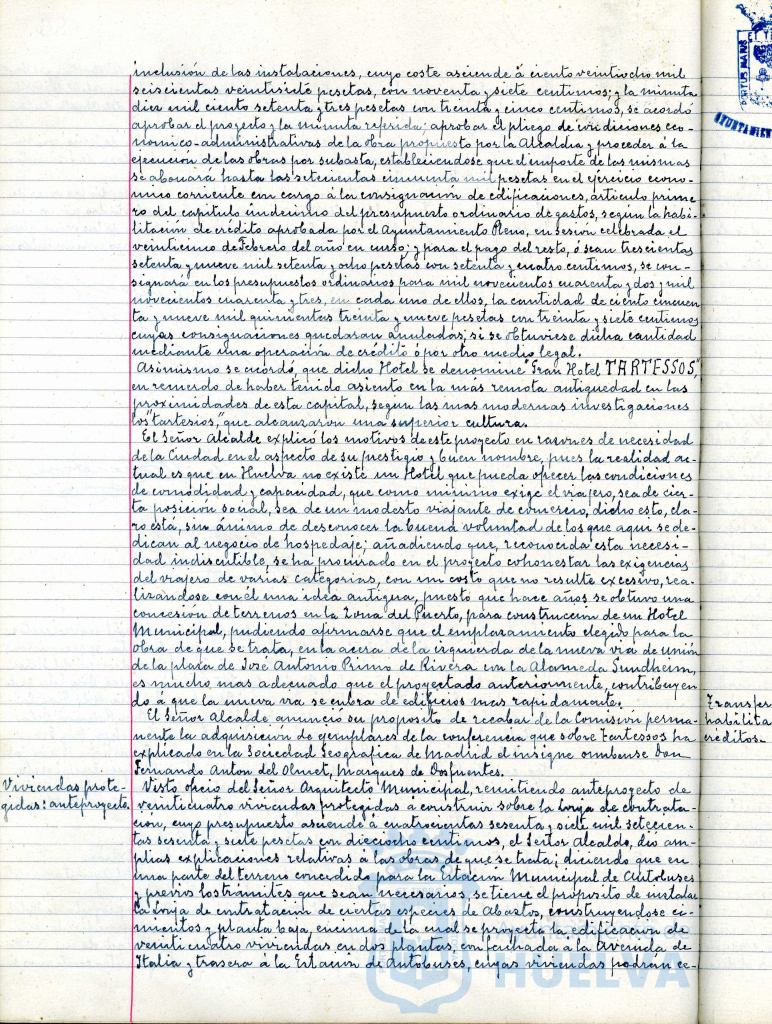 PORTUS MARIS
AYUNTAMIEN
inclusión de las instalaciones, cuyo coste asciende á ciento veintiocho mil
seiscientas veintisiete pesetas, con noventa y siete centimos; y la minuta
diez mil ciento setenta y tres pesetas con treinta y cinco centimos, se acordó
aprobar el proyecto y la minuta referida; aprobar el pliego de condiciones eco-
nomico-administrativas de la obra propuesto por la Alcaldia y proceder á la
ejecución de las obras por subasta, estableciendose que el importe de las mismas
se abonará hasta las setecientas cincuenta mil pesetas en el ejercicio econo-
mico corriente con cargo á la consignación de edificaciones, articulo prime-
ro del capitulo undecimo del presupuesto ordinario de gastos, según la habi-
litación de crédito aprobada por el Ayuntamiento Pleno, en sesión celebrada el
veinticinco de Febrero del año en curso; y para el pago del resto, ó sean trescientas
setenta y nueve mil setenta y ocho pesetas con setenta y cuatro centimos, se con-
signará en los presupuestos ordinarios para mil novecientos cuarenta y dos y mil
novecientos cuarenta y tres, en cada uno de ellos, la cantidad de ciento cincuen-
ta y nueve mil quinientas treinta y nueve pesetas con treinta y siete centimos
cuyas consignaciones quedaran anuladas, si se obtuviese dicha cantidad
mediante una operación de crédito ó por otro medio legal.
Asimismo se acordó, que dicho Hotel se denomine "Gran Hotel TARTESSOS",
en recuerdo de haber tenido asiento en la más remota antiguedad en las
proximidades de esta capital, según las mas modernas investigaciones
los "tartesios", que alcanzaron una superior cultura.
El Señor Alcalde explicó los motivos de este proyecto en razones de necesidad
de la Ciudad en el aspecto de su prestigio y buen nombre, pues la realidad ac-
tual es que en Huelva no existe un Hotel que pueda ofrecer las condiciones
de comodidad y capacidad, que como minimo exige el viajero, sea de cier-
ta posición social, sea de un modesto viajante de comercio, dicho esto, cla-
ro está, sin ánimo de desconocer la buena voluntad de los que aqui se de-
dican al negocio de hospedaje; añadiendo que, reconocida esta necesi-
dad indiscutible, se ha procurado en el proyecto cohonestar las exigencias
del viajero de varias categorias, con un costo que no resulte excesivo, rea-
lizándose con él una idea antigua, puesto que hace años se obtuvo una
concesión de terrenos en la Zona del Puerto, para construcción de un Hotel
Municipal, pudiendo afirmarse que el emplazamiento elegido para la
obra de que se trata, en la acera de la izquierda de la nueva via de unión
de la plaza de José Antonio Primo de Rivera con la Alameda Sundheim,
es mucho mas adecuado que el proyectado anteriormente, contribuyen-
do á que la nueva via se cubra de edificios mas rapidamente.
El Señor Alcalde anuncio su proposito de recabar de la Comisión perma-
nente la adquisición de ejemplares de la conferencia que sobre Tartessos ha
explicado en la Sociedad Geografica de Madrid el insigne onubense Don
Fernando Anton del Olmet, Marques de Dosfuentes.
Transfer
habilita
créditos-
Viviendas prote-
gidas: anteproyecto.
Visto oficio del Señor Arquitecto Municipal, remitiendo anteproyecto de
veinticuatro viviendas protegidas á construir sobre la lonja de contrata-
ción, cuyo presupuesto asciende á cuatrocientas sesenta y siete mil setecien-
tas sesenta y siete pesetas con dieciocho centimos, el Señor Alcalde, dio am-
plias explicaciones relativas á las obras de que se trata; diciendo que en
una parte del terreno concedido para la Estación Municipal de Autobuses
y previos los trámites que sean necesarios, se tiene el proposito de instalar
la lonja de contratacion de ciertas especies de Abastos, construyendose ci-
mientos y planta baja, encima de la cual se proyecta la edificación de
veinticuatro viviendas, en dos plantas, con fachada á la Avenida de
Italia y trasera á la Estación de Autobuses, cuyas viviendas podrán ce-
HUELVA